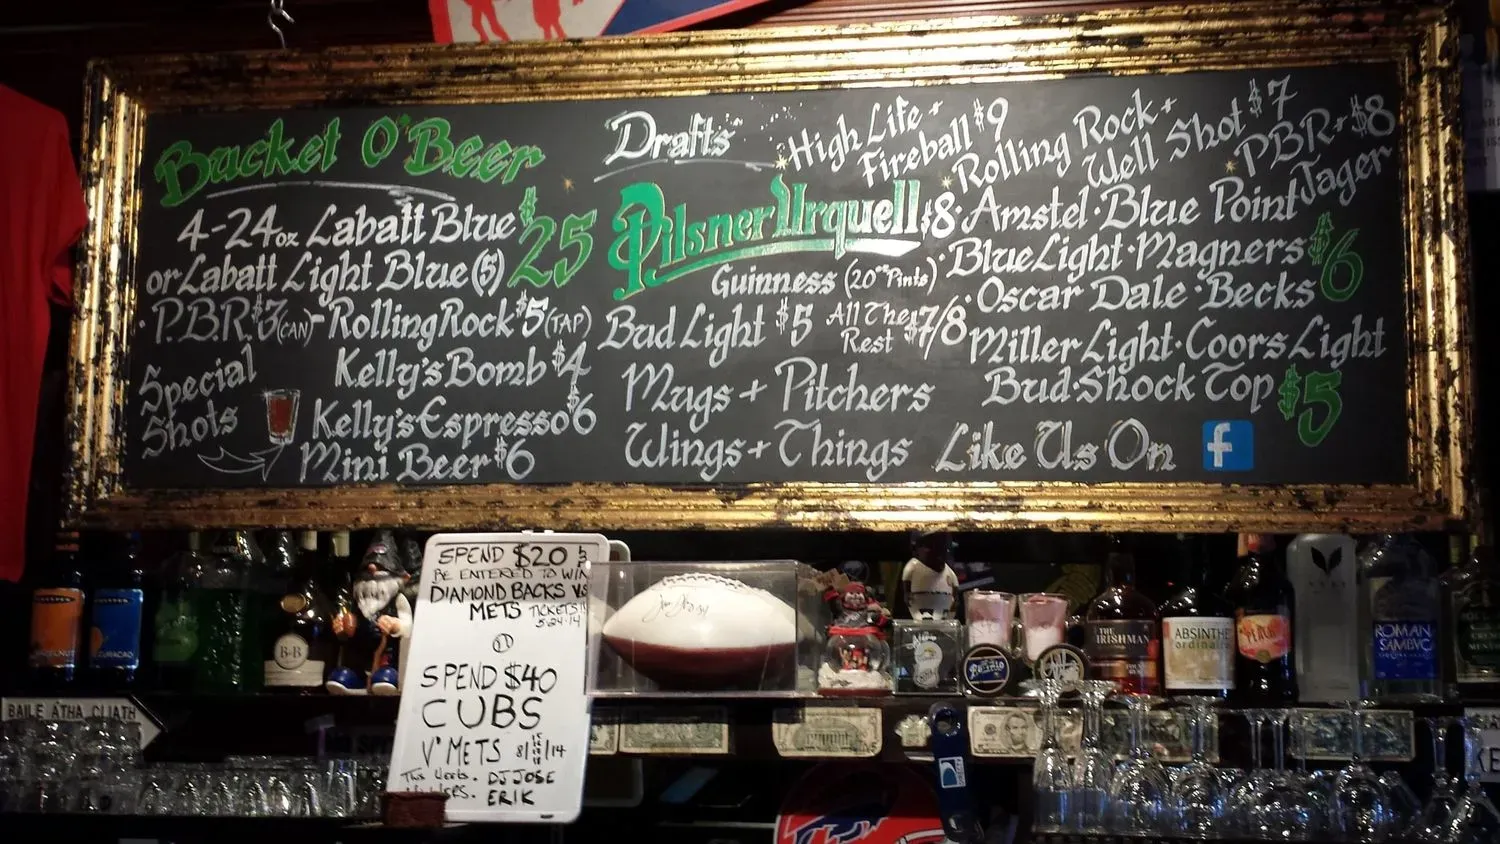 Bucket O'Beer
4-24oz Labatt Blue $25
or Labatt Light Blue (5)
· P.B.R. $3 (CAN) - Rolling Rock $5 (TAP)
Special Shots
Kelly's Bomb $4
Kelly's Espresso $6
Mini Beer $6
Drafts
Pilsner Urquell $8
Guinness (20oz Pints)
Bud Light $5 All The Rest $7/8
Mugs + Pitchers
Wings + Things
High Life + Fireball $9
Rolling Rock + Well Shot $7
PBR + Jager $8
· Amstel · Blue Point
· Blue Light · Magners $6
· Oscar Dale · Becks
Miller Light · Coors Light
Bud · Shock Top $5
Like Us On f
SPEND $20 &
BE ENTERED TO WIN
DIAMOND BACKS VS
METS TICKETS!!
5·24·14
SPEND $40
CUBS
V' METS 8/ /14
This Weeks. DJ JOSE
ERIK
BAILE ÁTHA CLIATH
HAZELNUT
CURACAO
B&B
THE
IRISHMAN
ABSINTHE
ordinaire
PEACH
ROMAN
SAMBVC